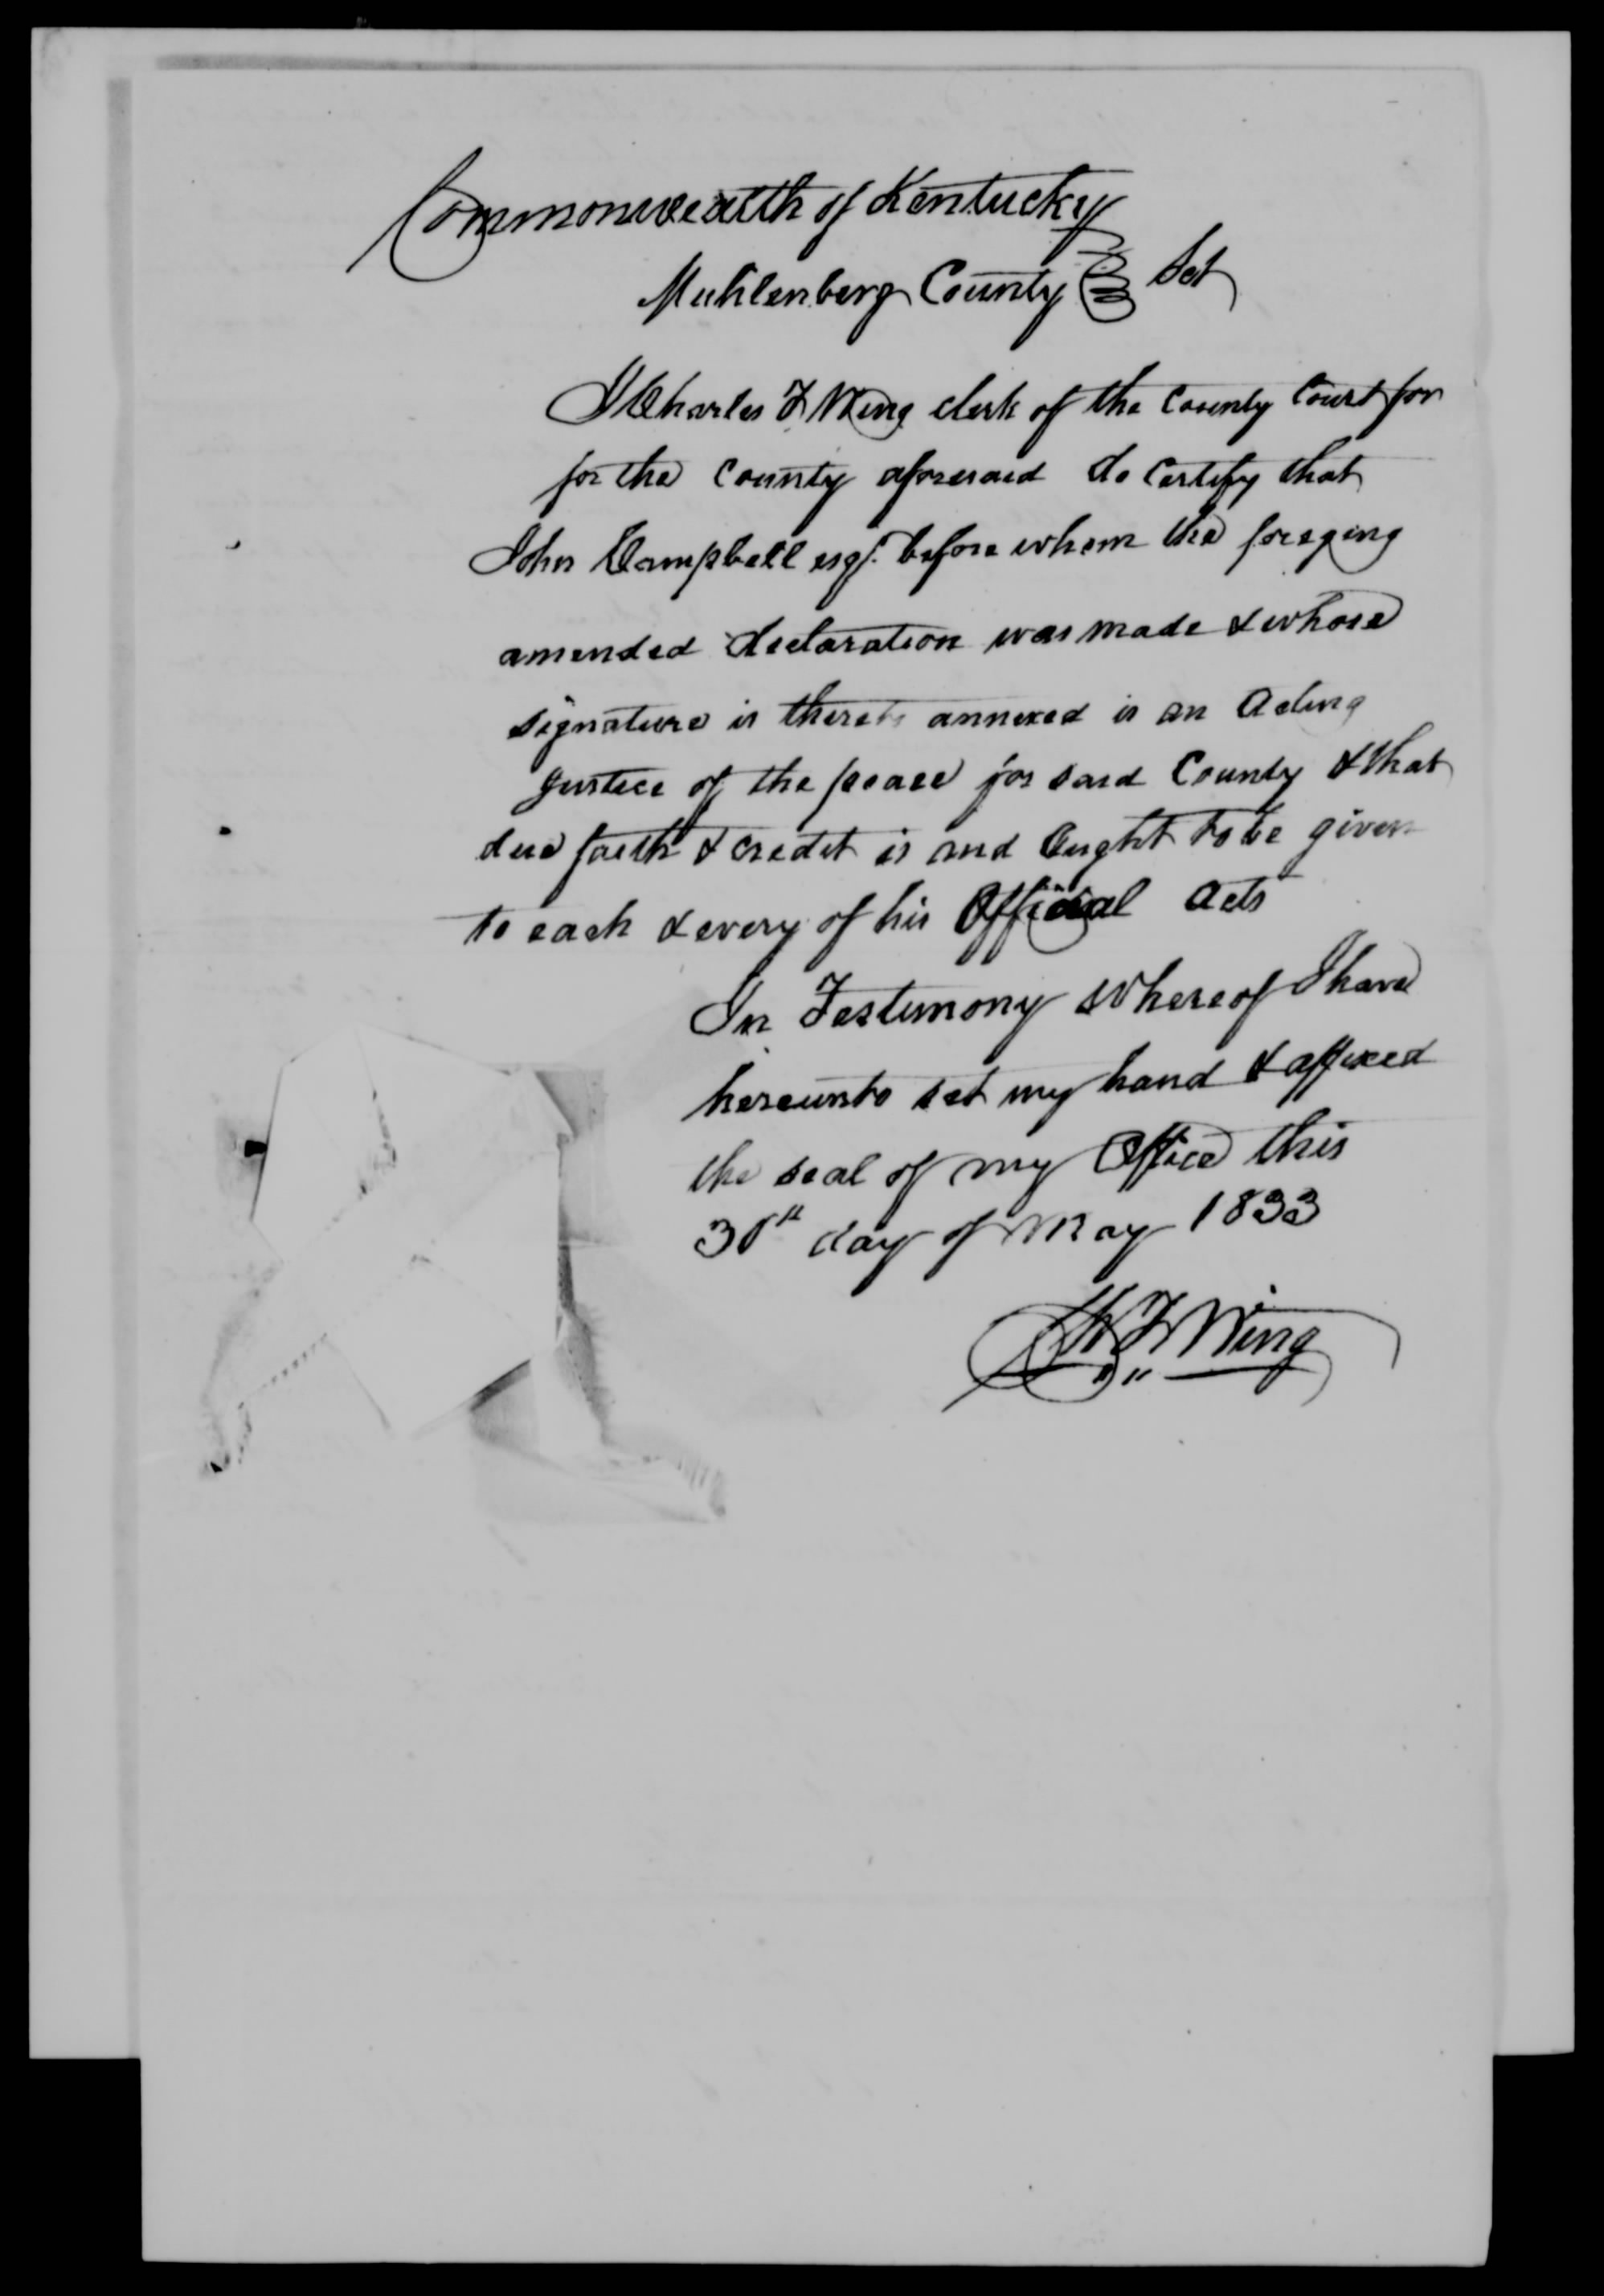 Commonwealth of Kentucky
Muhlenberg County Sct
I Charles F Wing clerk of the County Court for
for the County aforesaid do Certify that
John Campbell esqr. before whom the foreging
amended declaration was made & whose
signature is thereto annexed is an Acting
Justice of the peace for said County & that
due faith & credit is and Ought to be given
to each & every of his Official Acts
In Testimony whereof I have
hereunto set my hand & affixed
the seal of my Office this
30th day of May 1833
Ch F Wing